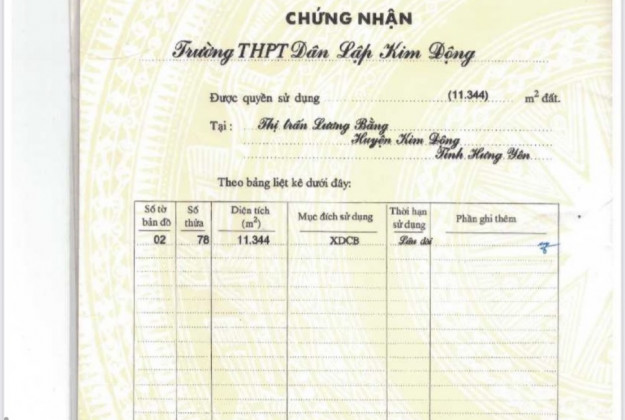 CHỨNG NHẬN
Trường THPT Dân Lập Kim Động
Được quyền sử dụng (11.344) m² đất.
Tại : Thị trấn Lương Bằng
Huyện Kim Động
Tỉnh Hưng Yên
Theo bảng liệt kê dưới đây:
Số tờ bản đồ Số thửa Diện tích (m²) Mục đích sử dụng Thời hạn sử dụng Phần ghi thêm
02 78 11.344 XDCB Lâu dài